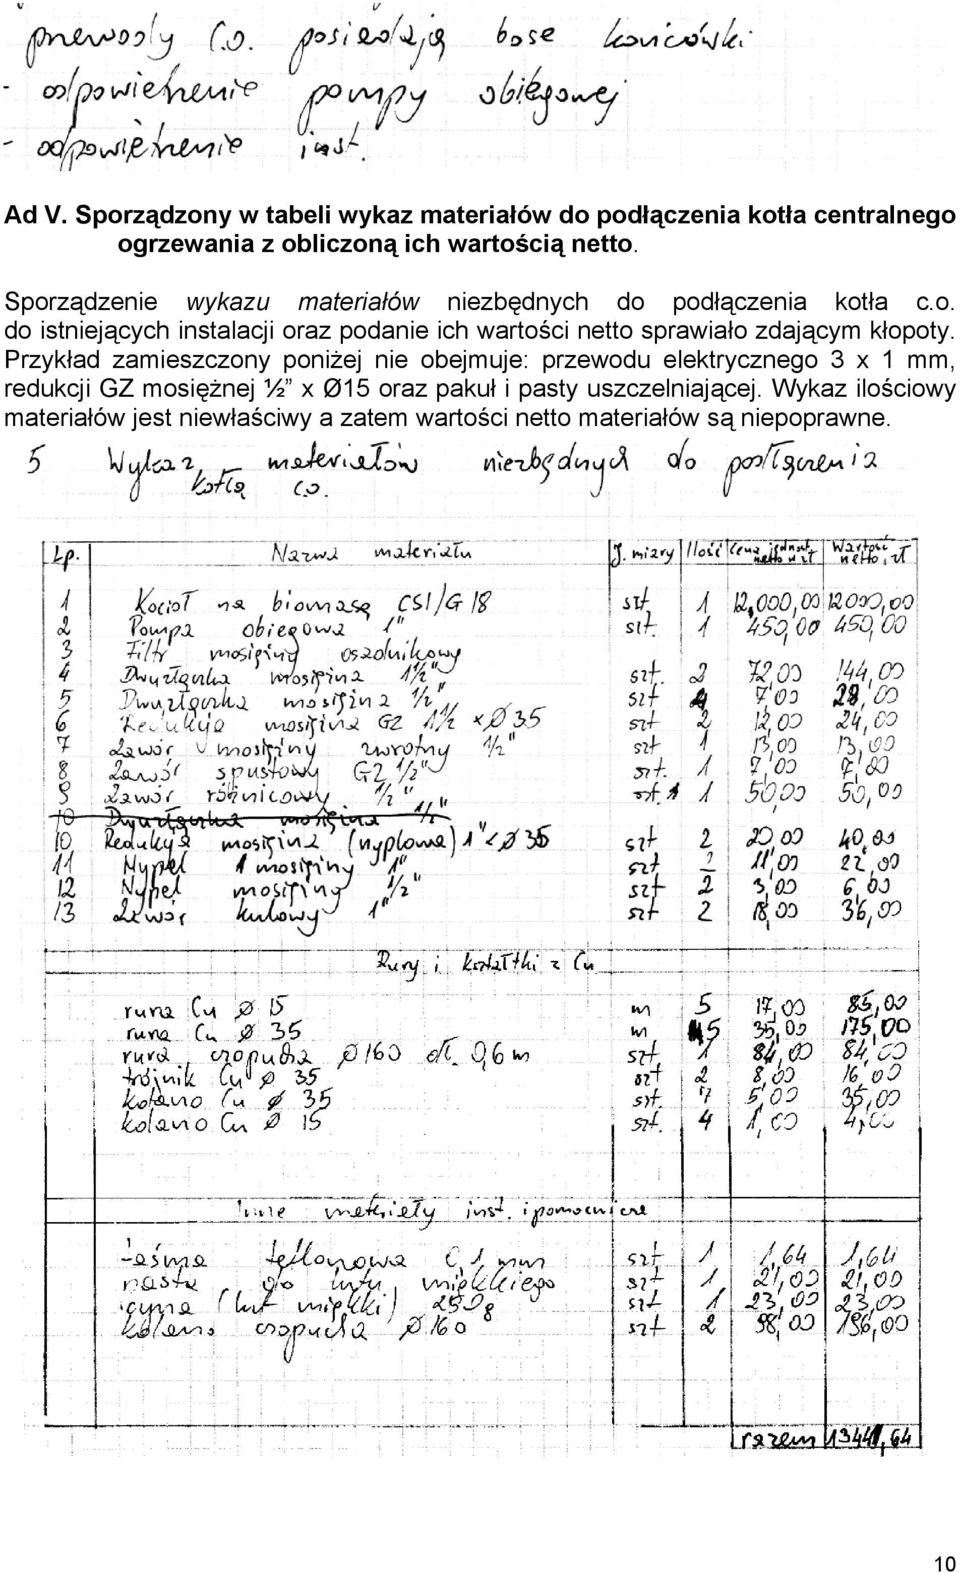 przewody C.O. posiadają bose końcówki
- odpowietrzenie pompy obiegowej
- odpowietrzenie inst.
Ad V. Sporządzony w tabeli wykaz materiałów do podłączenia kotła centralnego
ogrzewania z obliczoną ich wartością netto.
Sporządzenie wykazu materiałów niezbędnych do podłączenia kotła c.o.
do istniejących instalacji oraz podanie ich wartości netto sprawiało zdającym kłopoty.
Przykład zamieszczony poniżej nie obejmuje: przewodu elektrycznego 3 x 1 mm,
redukcji GZ mosiężnej ½” x Ø15 oraz pakuł i pasty uszczelniającej. Wykaz ilościowy
materiałów jest niewłaściwy a zatem wartości netto materiałów są niepoprawne.
5 Wykaz materiałów niezbędnych do podłączenia
kotła C.O.
Lp. Nazwa materiału J. miary Ilość Cena jednost netto w zł Wartość netto, zł
1 Kocioł na biomasę CSI/G 18 szt 1 12.000,00 12000,00
2 Pompa obiegowa 1" szt. 1 450,00 450,00
3 Filtr mosiężny osadnikowy
4 Dwuzłączka mosiężna 1½" szt. 2 72,00 144,00
5 Dwuzłączka mosiężna ½" szt 4 7,00 28,00
6 Redukcja mosiężna GZ 1½ x Ø35 szt 2 12,00 24,00
7 Zawór mosiężny zwrotny ½" szt 1 13,00 13,00
8 Zawór spustowy GZ ½" szt. 1 7,00 7,00
9 Zawór różnicowy ½" szt. 1 50,00 50,00
10 Dwuzłączka mosiężna ½"
10 Redukcja mosiężna (nyplowa) 1" x Ø 35 szt 2 20,00 40,00
11 Nypel mosiężny 1" szt 2 11,00 22,00
12 Nypel mosiężny ½" szt 2 3,00 6,00
13 Zawór kulowy 1" szt 2 18,00 36,00
Rury i kształtki z Cu
rura Cu Ø 15 m 5 17,00 85,00
rura Cu Ø 35 m 5 35,00 175,00
rura czopucha Ø160 dł. 0,6m szt. 1 84,00 84,00
trójnik Cu Ø 35 szt 2 8,00 16,00
kolano Cu Ø 35 szt. 7 5,00 35,00
kolano Cu Ø 15 szt. 4 1,00 4,00
Inne materiały inst. i pomocnicze
taśma teflonowa 0,1 mm szt 1 1,64 1,64
pasta do lutu miękkiego szt 1 21,00 21,00
cyna (lut miękki) 250g szt 1 23,00 23,00
kolano czopucha Ø160 szt 2 98,00 196,00
razem 13441,64
10